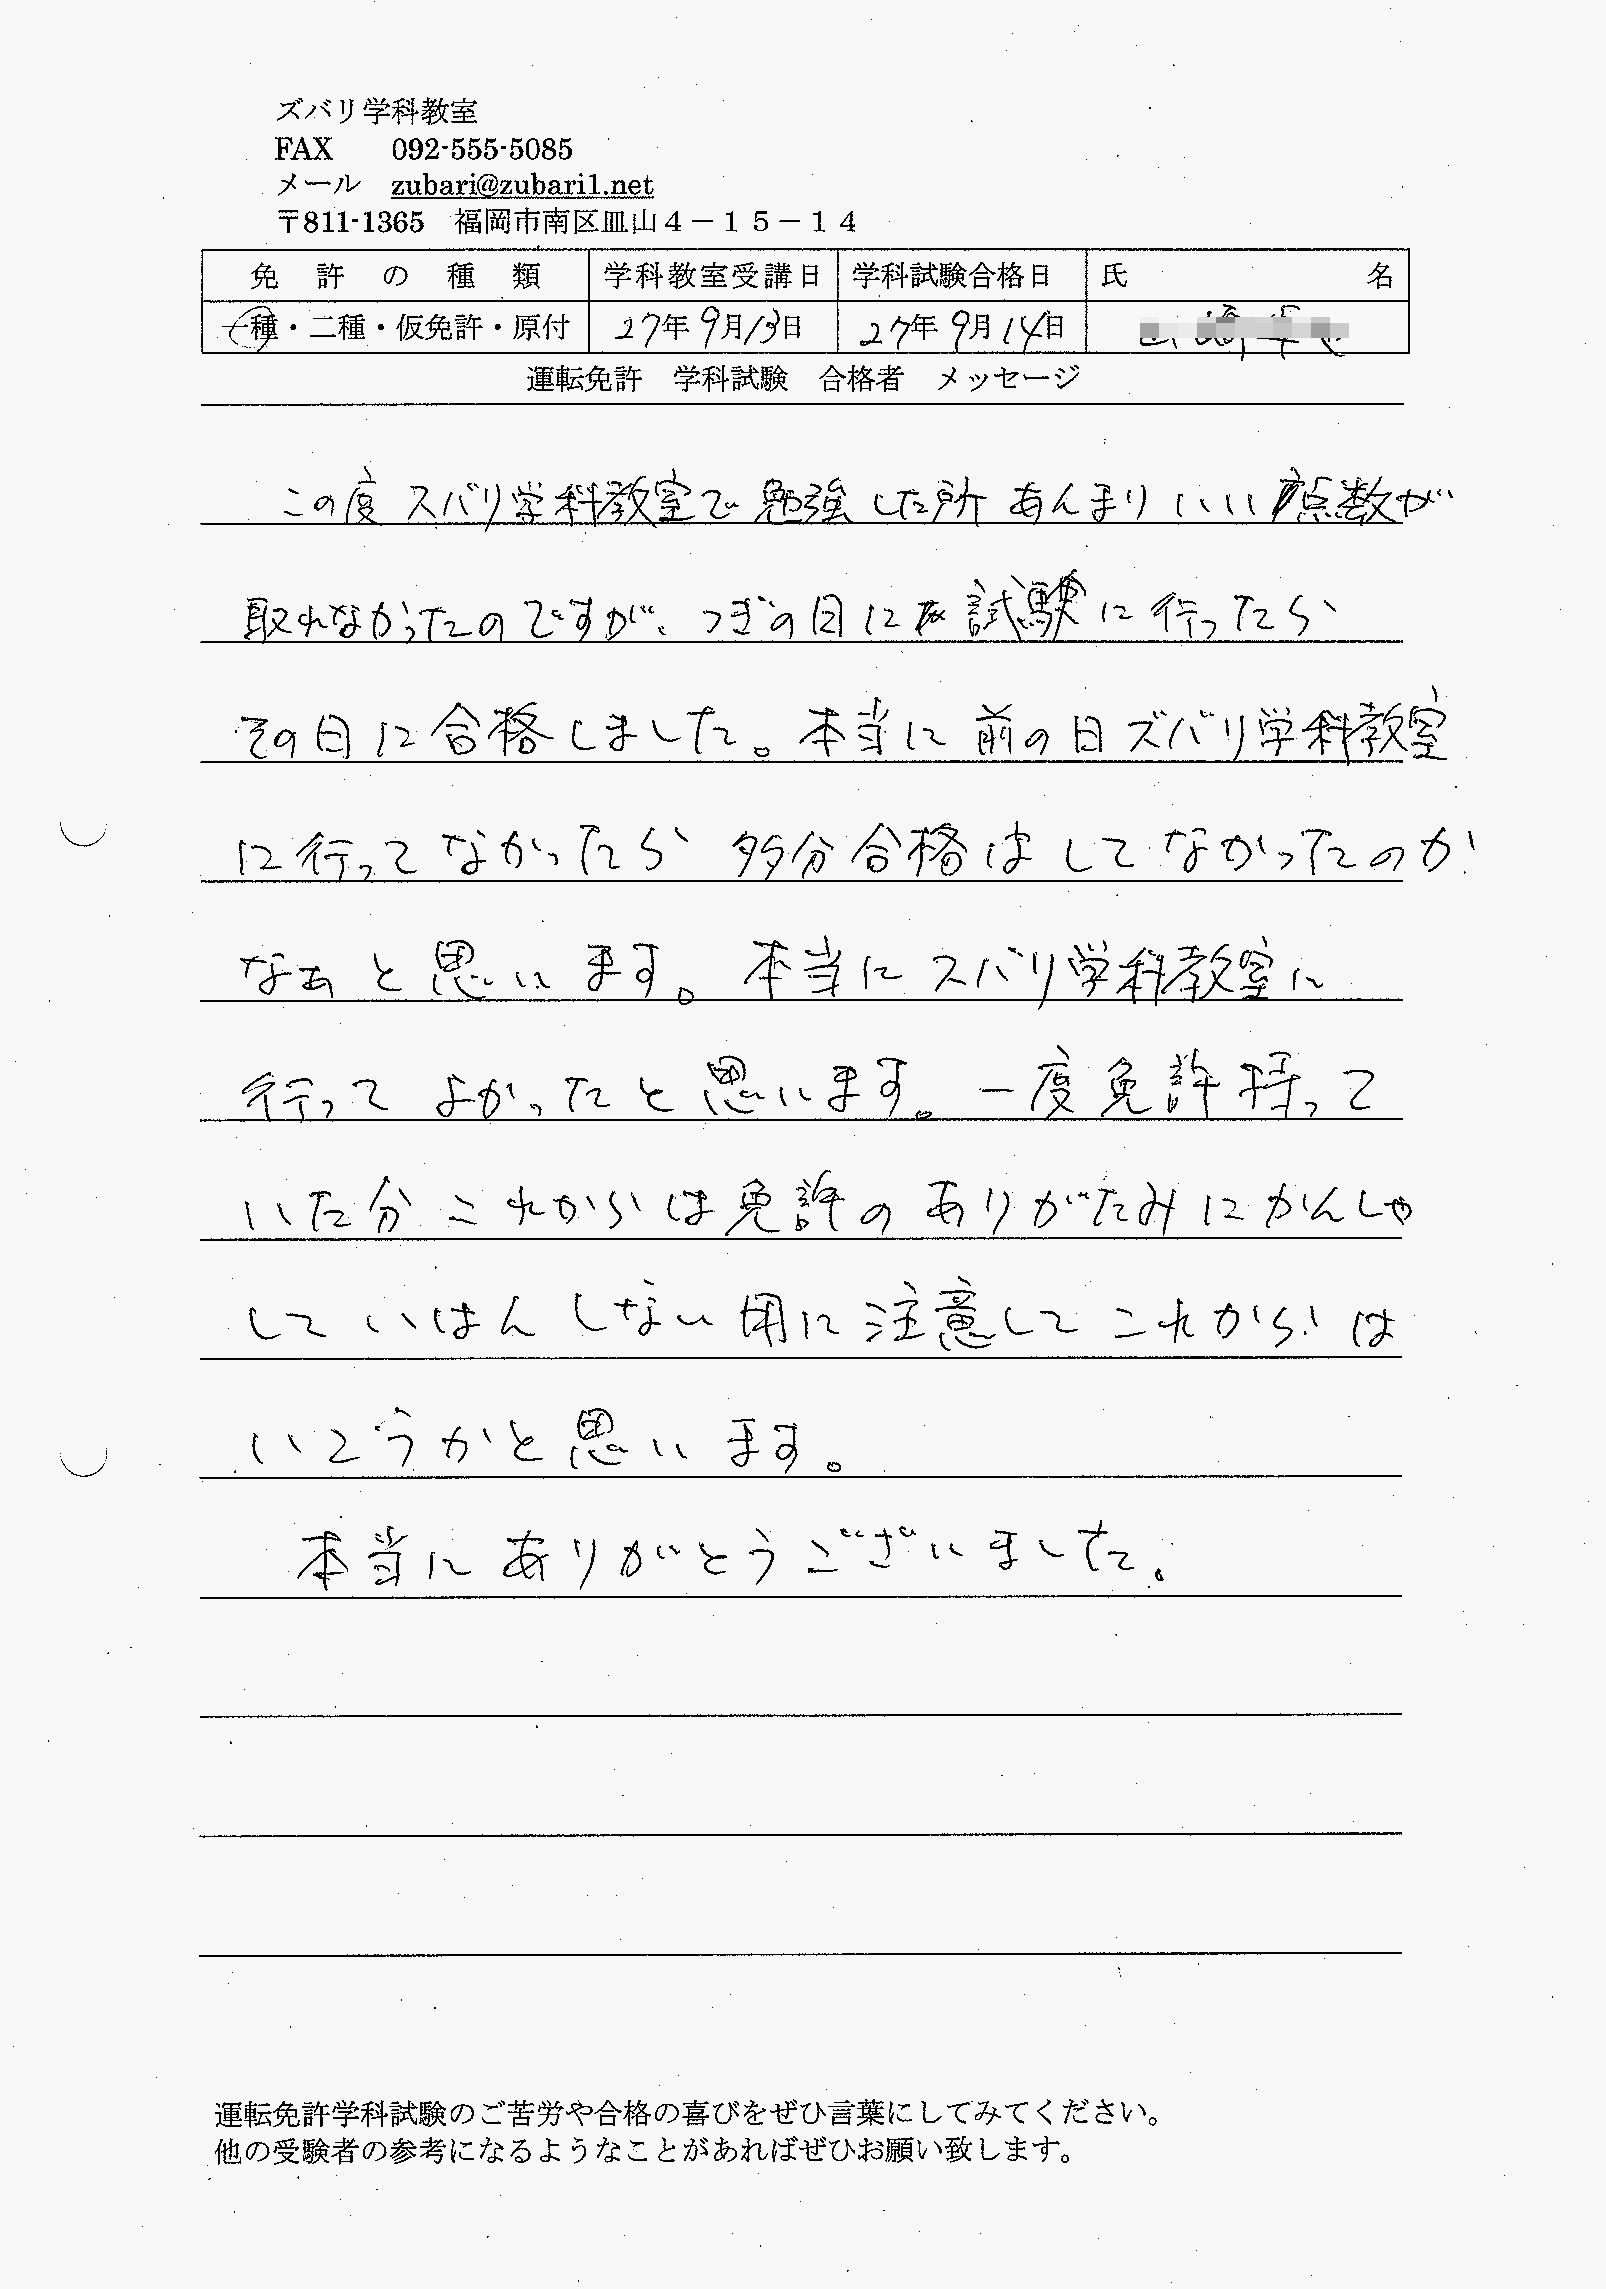 ズバリ学科教室
FAX 092-555-5085
メール zubari@zubari1.net
〒811-1365 福岡市南区皿山４－１５－１４
免許の種類 学科教室受講日 学科試験合格日 氏名
一種・二種・仮免許・原付 27年9月13日 27年9月14日
運転免許 学科試験 合格者 メッセージ
この度スバリ学科教室で勉強した所あんまりいい点数が
取れなかったのですが、つぎの日に試験に行ったら
その日に合格しました。本当に前の日ズバリ学科教室
に行ってなかったら多分合格はしてなかったのか
なぁと思います。本当にスバリ学科教室に
行ってよかったと思います。一度免許持って
いた分これからは免許のありがたみにかんしゃ
していはんしない用に注意してこれからは
いこうかと思います。
本当にありがとうございました。
運転免許学科試験のご苦労や合格の喜びをぜひ言葉にしてみてください。
他の受験者の参考になるようなことがあればぜひお願い致します。